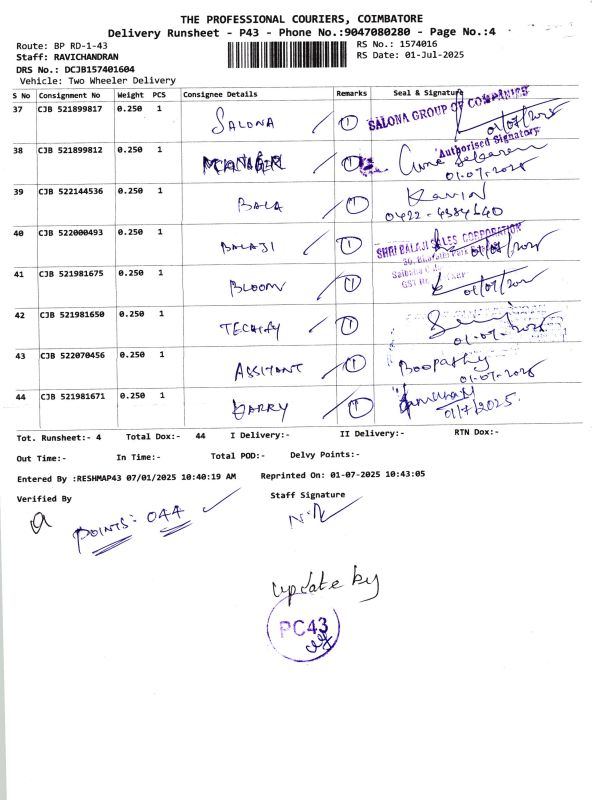 THE PROFESSIONAL COURIERS, COIMBATORE
Delivery Runsheet - P43 - Phone No.:9047080280 - Page No.:4
Route: BP RD-1-43
RS No.: 1574016
Staff: RAVICHANDRAN
RS Date: 01-Jul-2025
DRS No.: DCJB157401604
Vehicle: Two Wheeler Delivery
S No Consignment No Weight PCS Consignee Details Remarks Seal & Signature
37 CJB 521899817 0.250 1 SALONA 1 SALONA GROUP OF COMPANIES 01/07/2025
Authorised Signatory
38 CJB 521899812 0.250 1 MANAGER 1 01.07.2025
39 CJB 522144536 0.250 1 BALA 1 Kavin
0422-4384440
40 CJB 522000493 0.250 1 BALAJI 1 SHRI BALAJI SALES CORPORATION 01/07/2025
41 CJB 521981675 0.250 1 BLOOM 1 01/07/2025
42 CJB 521981650 0.250 1 TECHIFY 1 01.07.2025
43 CJB 522070456 0.250 1 ASSITANT 1 Boopathy
01.07.2025
44 CJB 521981671 0.250 1 HARRY 1 01/7/2025.
Tot. Runsheet:- 4 Total Dox:- 44 I Delivery:- II Delivery:- RTN Dox:-
Out Time:- In Time:- Total POD:- Delvy Points:-
Entered By :RESHMAP43 07/01/2025 10:40:19 AM Reprinted On: 01-07-2025 10:43:05
Verified By Staff Signature
POINTS: 044
update by
PC43